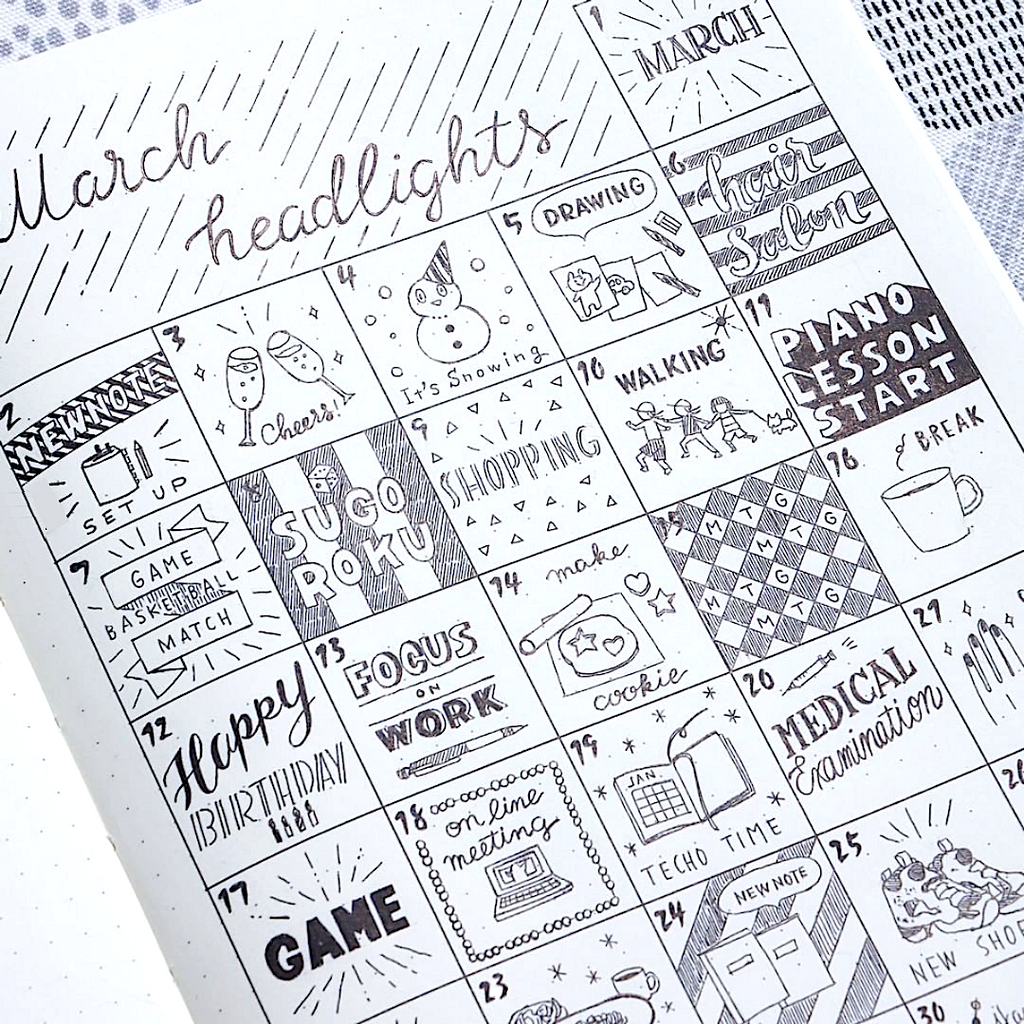 March
headlights
1
MARCH
2
NEW NOTE
SET UP
3
Cheers!
4
It's Snowing
5
DRAWING
6
hair
salon
7
GAME
BASKETBALL
MATCH
8
SUGO
ROKU
9
SHOPPING
10
WALKING
11
PIANO
LESSON
START
12
Happy
BIRTHDAY
13
FOCUS
ON
WORK
14
make
cookie
15
M T G
M T G
M T G
M T G
16
BREAK
17
GAME
18
on line
meeting
19
JAN.
TECHO TIME
20
MEDICAL
Examination
21
23
24
NEW NOTE
25
NEW
30